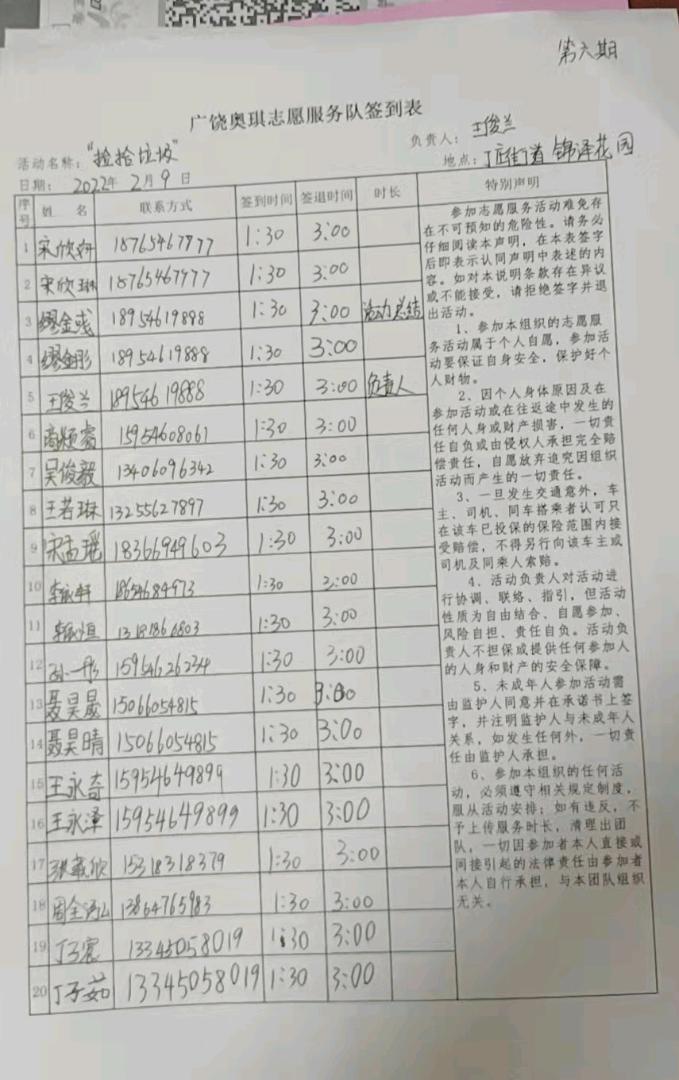 第六期
广饶奥琪志愿服务队签到表
活动名称："捡拾垃圾" 负责人：王俊兰
日期：2022年2月9日 地点：丁庄街道 锦泽花园
序号 姓名 联系方式 签到时间 签退时间 时长 特别声明
1 宋欣妍 18765467977 1:30 3:00
2 宋欣琳 18765467977 1:30 3:00
3 缪金彧 18954619888 1:30 3:00 活动总结
4 缪金彤 18954619888 1:30 3:00
5 王俊兰 18954619888 1:30 3:00 负责人
6 15954608061 1:30 3:00
7 吴俊毅 13406096342 1:30 3:00
8 王若琳 13255627897 1:30 3:00
9 宋孟瑶 18366949603 1:30 3:00
10 1:30 3:00
11 1:30 3:00
12 孙一彤 15954626234 1:30 3:00
13 聂昊晟 15066054815 1:30 3:00
14 聂昊晴 15066054815 1:30 3:00
15 王永奇 15954649899 1:30 3:00
16 王永泽 15954649899 1:30 3:00
17 15318318379 1:30 3:00
18 13864765983 1:30 3:00
19 丁子宸 13345058019 1:30 3:00
20 丁子茹 13345058019 1:30 3:00
参加志愿服务活动难免存
在不可预知的危险性。请务必
仔细阅读本声明，在本表签字
后即表示认同声明中表述的内
容。如对本说明条款存在异议
或不能接受，请拒绝签字并退
出活动。
1、参加本组织的志愿服
务活动属于个人自愿，参加活
动要保证自身安全，保护好个
人财物。
2、因个人身体原因及在
参加活动或在往返途中发生的
任何人身或财产损害，一切责
任自负或由侵权人承担完全赔
偿责任，自愿放弃追究因组织
活动而产生的一切责任。
3、一旦发生交通意外，车
主、司机、同车搭乘者认可只
在该车已投保的保险范围内接
受赔偿，不得另行向该车主或
司机及同乘人索赔。
4、活动负责人对活动进
行协调、联络、指引，但活动
性质为自由结合、自愿参加、
风险自担、责任自负。活动负
责人不担保或提供任何参加人
的人身和财产的安全保障。
5、未成年人参加活动需
由监护人同意并在承诺书上签
字，并注明监护人与未成年人
关系，如发生任何外，一切责
任由监护人承担。
6、参加本组织的任何活
动，必须遵守相关规定制度，
服从活动安排；如有违反，不
予上传服务时长，清理出团
队，一切因参加者本人直接或
间接引起的法律责任由参加者
本人自行承担，与本团队组织
无关。